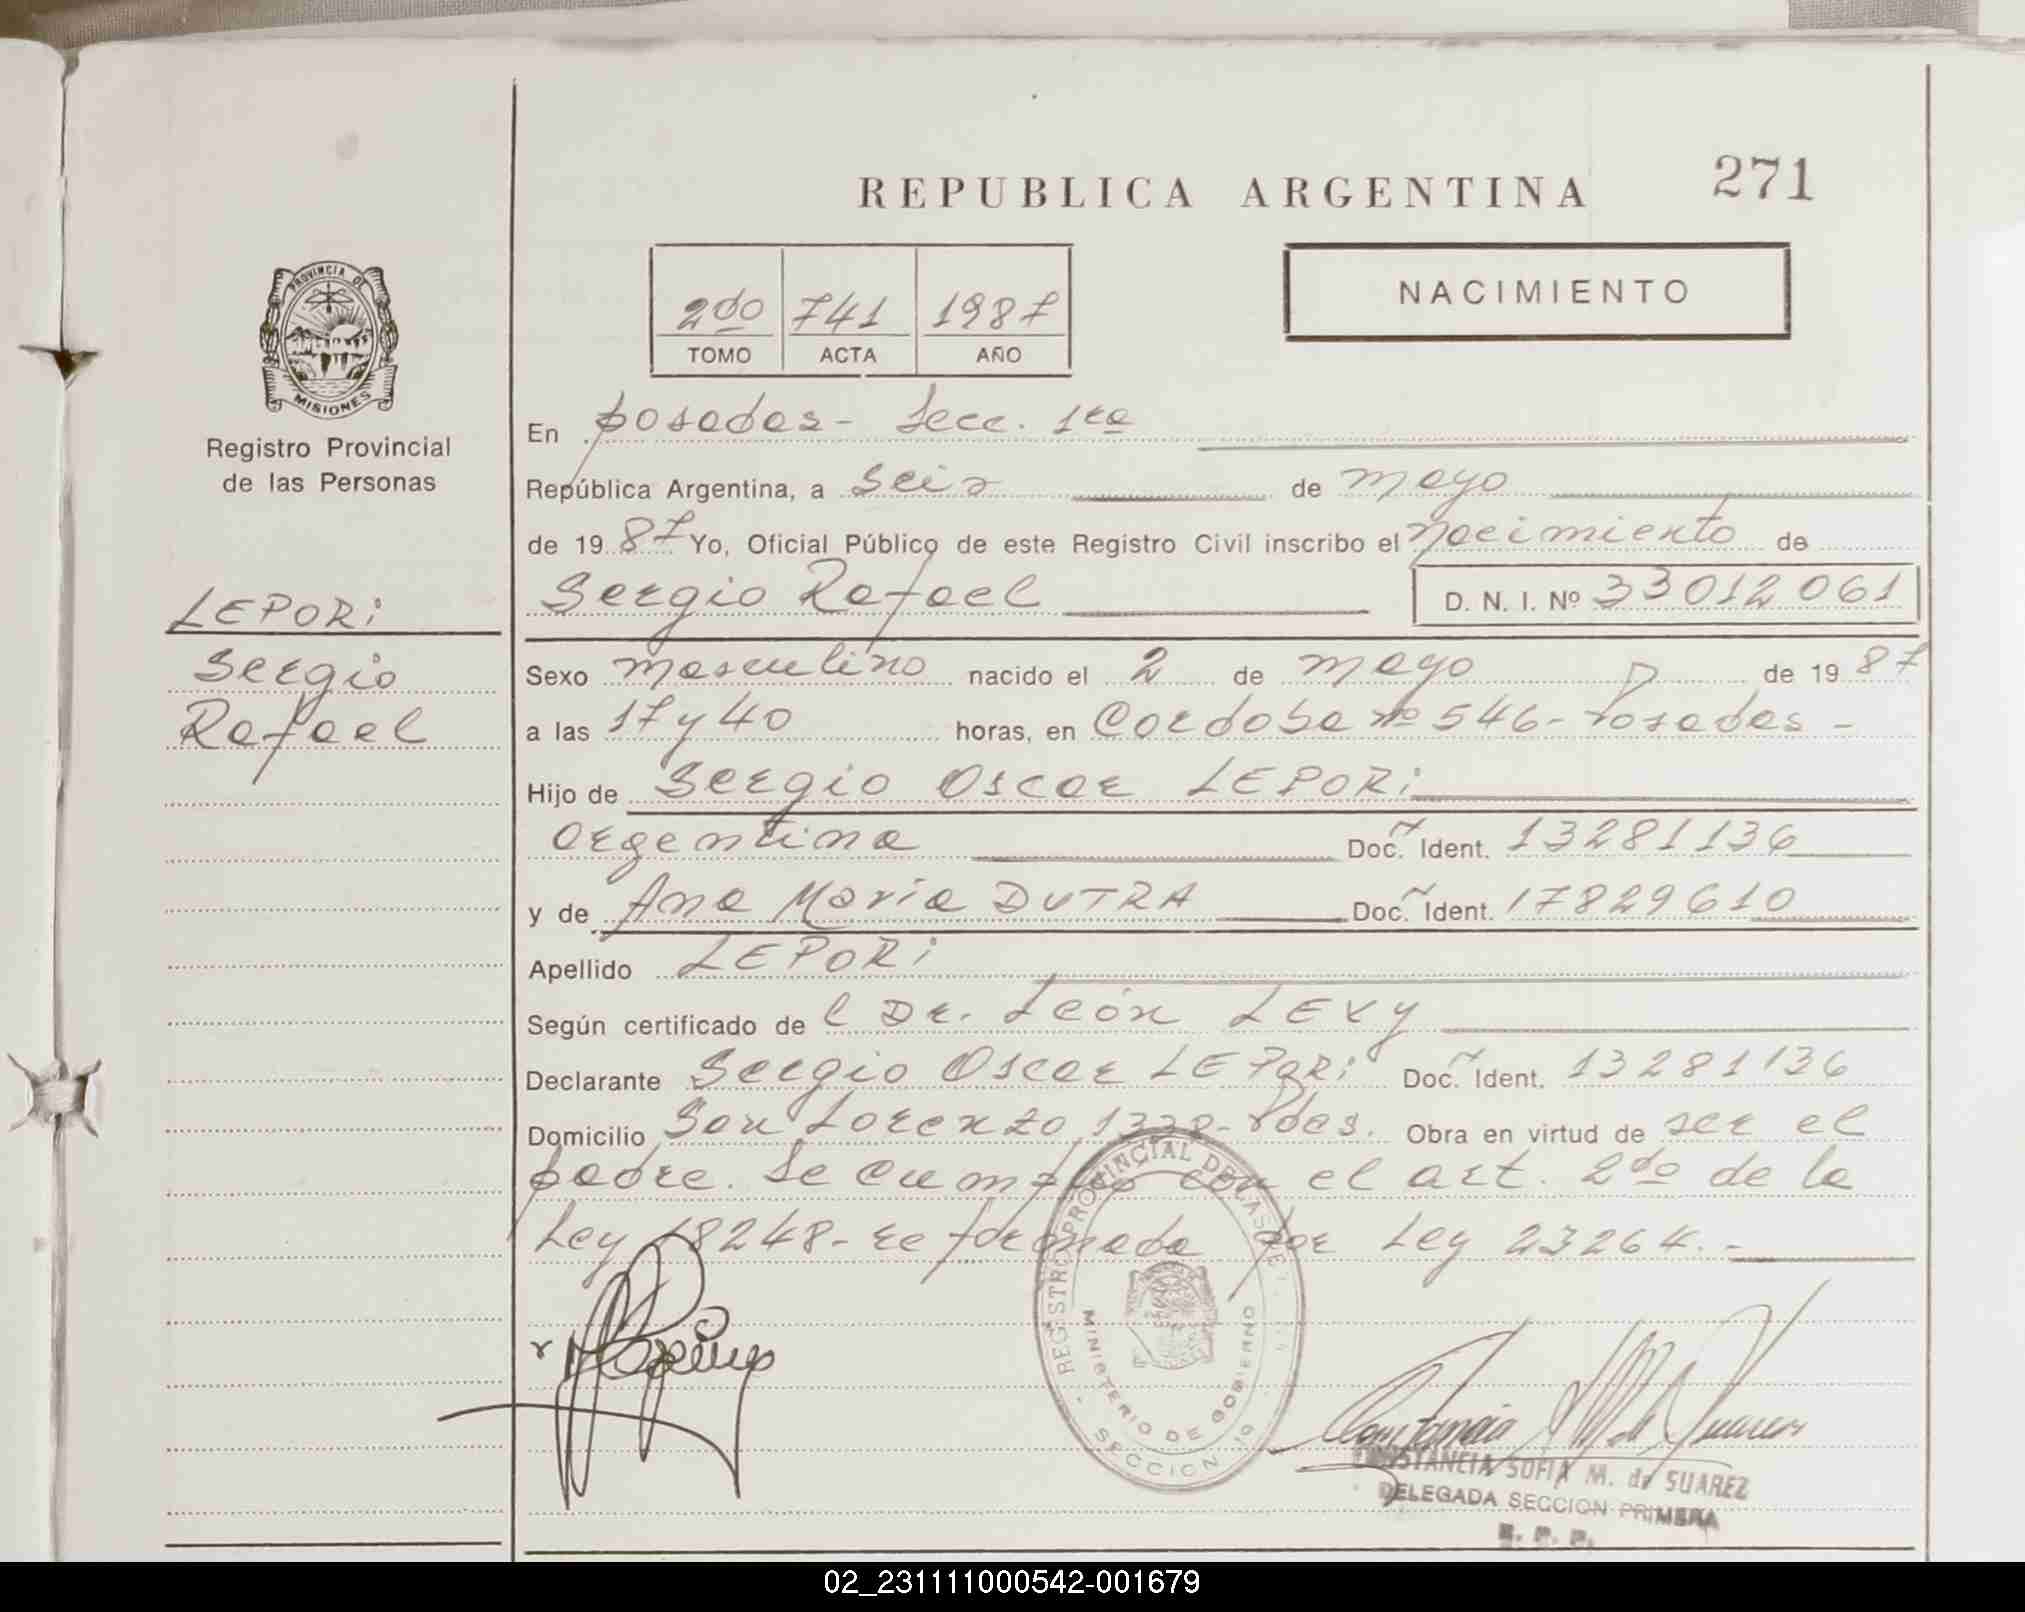 REPUBLICA ARGENTINA
271
PROVINCIA DE
MISIONES
Registro Provincial
de las Personas
2do 741 1987
TOMO ACTA AÑO
NACIMIENTO
En posadas - Secc. 1ra
República Argentina, a seis de mayo
de 1987 Yo, Oficial Público de este Registro Civil inscribo el nacimiento de
Sergio Rafael D. N. I. Nº 33012061
LEPORi
Sergio
Rafael
Sexo masculino nacido el 2 de mayo de 1987
a las 17 y 40 horas, en Cordoba nº 546 - Posadas -
Hijo de Sergio Oscar LEPORi
argentina Doc. Ident. 13281136
y de Ana Maria DUTRA Doc. Ident. 17829610
Apellido LEPORi
Según certificado de l Dr. León LEVY
Declarante Sergio Oscar LEPORi Doc. Ident. 13281136
Domicilio San Lorenzo Pdas. Obra en virtud de ser el
padre. Se cumplio con el art. 2do de la
Ley 18248 - reformada por Ley 23264. -
REGISTRO PROVINCIAL DE LAS PE
MINISTERIO DE GOBIERNO
SECCION 1a
Constancia S M de Suarez
CONSTANCIA SOFIA M. de SUAREZ
DELEGADA SECCION PRIMERA
R. P. P.
02_231111000542-001679